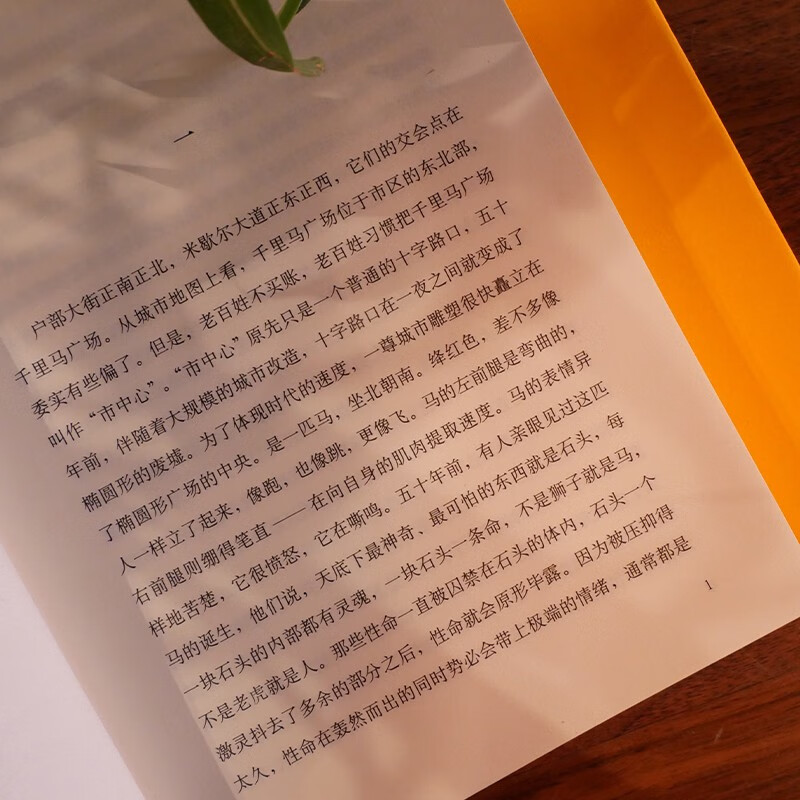 一
户部大街正南正北，米歇尔大道正东正西，它们的交会点在
千里马广场。从城市地图上看，千里马广场位于市区的东北部，
委实有些偏了。但是，老百姓不买账，老百姓习惯把千里马广场
叫作“市中心”。“市中心”原先只是一个普通的十字路口，五十
年前，伴随着大规模的城市改造，十字路口在一夜之间就变成了
椭圆形的废墟。为了体现时代的速度，一尊城市雕塑很快矗立在
了椭圆形广场的中央。是一匹马，坐北朝南。绛红色，差不多像
人一样立了起来，像跑，也像跳，更像飞。马的左前腿是弯曲的，
右前腿则绷得笔直——在向自身的肌肉提取速度。马的表情异
样地苦楚，它很愤怒，它在嘶鸣。五十年前，有人亲眼见过这匹
马的诞生，他们说，天底下最神奇、最可怕的东西就是石头，每
一块石头的内部都有灵魂，一块石头一条命，不是狮子就是马，
不是老虎就是人。那些性命一直被囚禁在石头的体内，石头一个
激灵抖去了多余的部分之后，性命就会原形毕露。因为被压抑得
太久，性命在轰然而出的同时势必会带上极端的情绪，通常都是
1